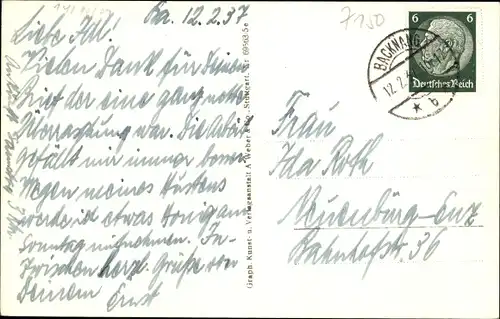 Ba. 12.2.37
Liebe
Vielen Dank für Deinen
Brief der eine ganz nette
Überraschung war. Die Arbeit
gefällt mir immer besser
Wegen meines Hustens
werde ich etwas Honig am
Sonntag mitnehmen. In-
zwischen herzl. Grüße von
Deinem
Ernst
Graph. Kunst- u. Verlagsanstalt A. Weber & Co. Stuttgart. Nr. 69963 5e
7150
6 6
Deutsches Reich
BACKNANG
12.2.
* b
Frau
Ida Roth
Neuenburg-Enz
Bahnhofstr. 36